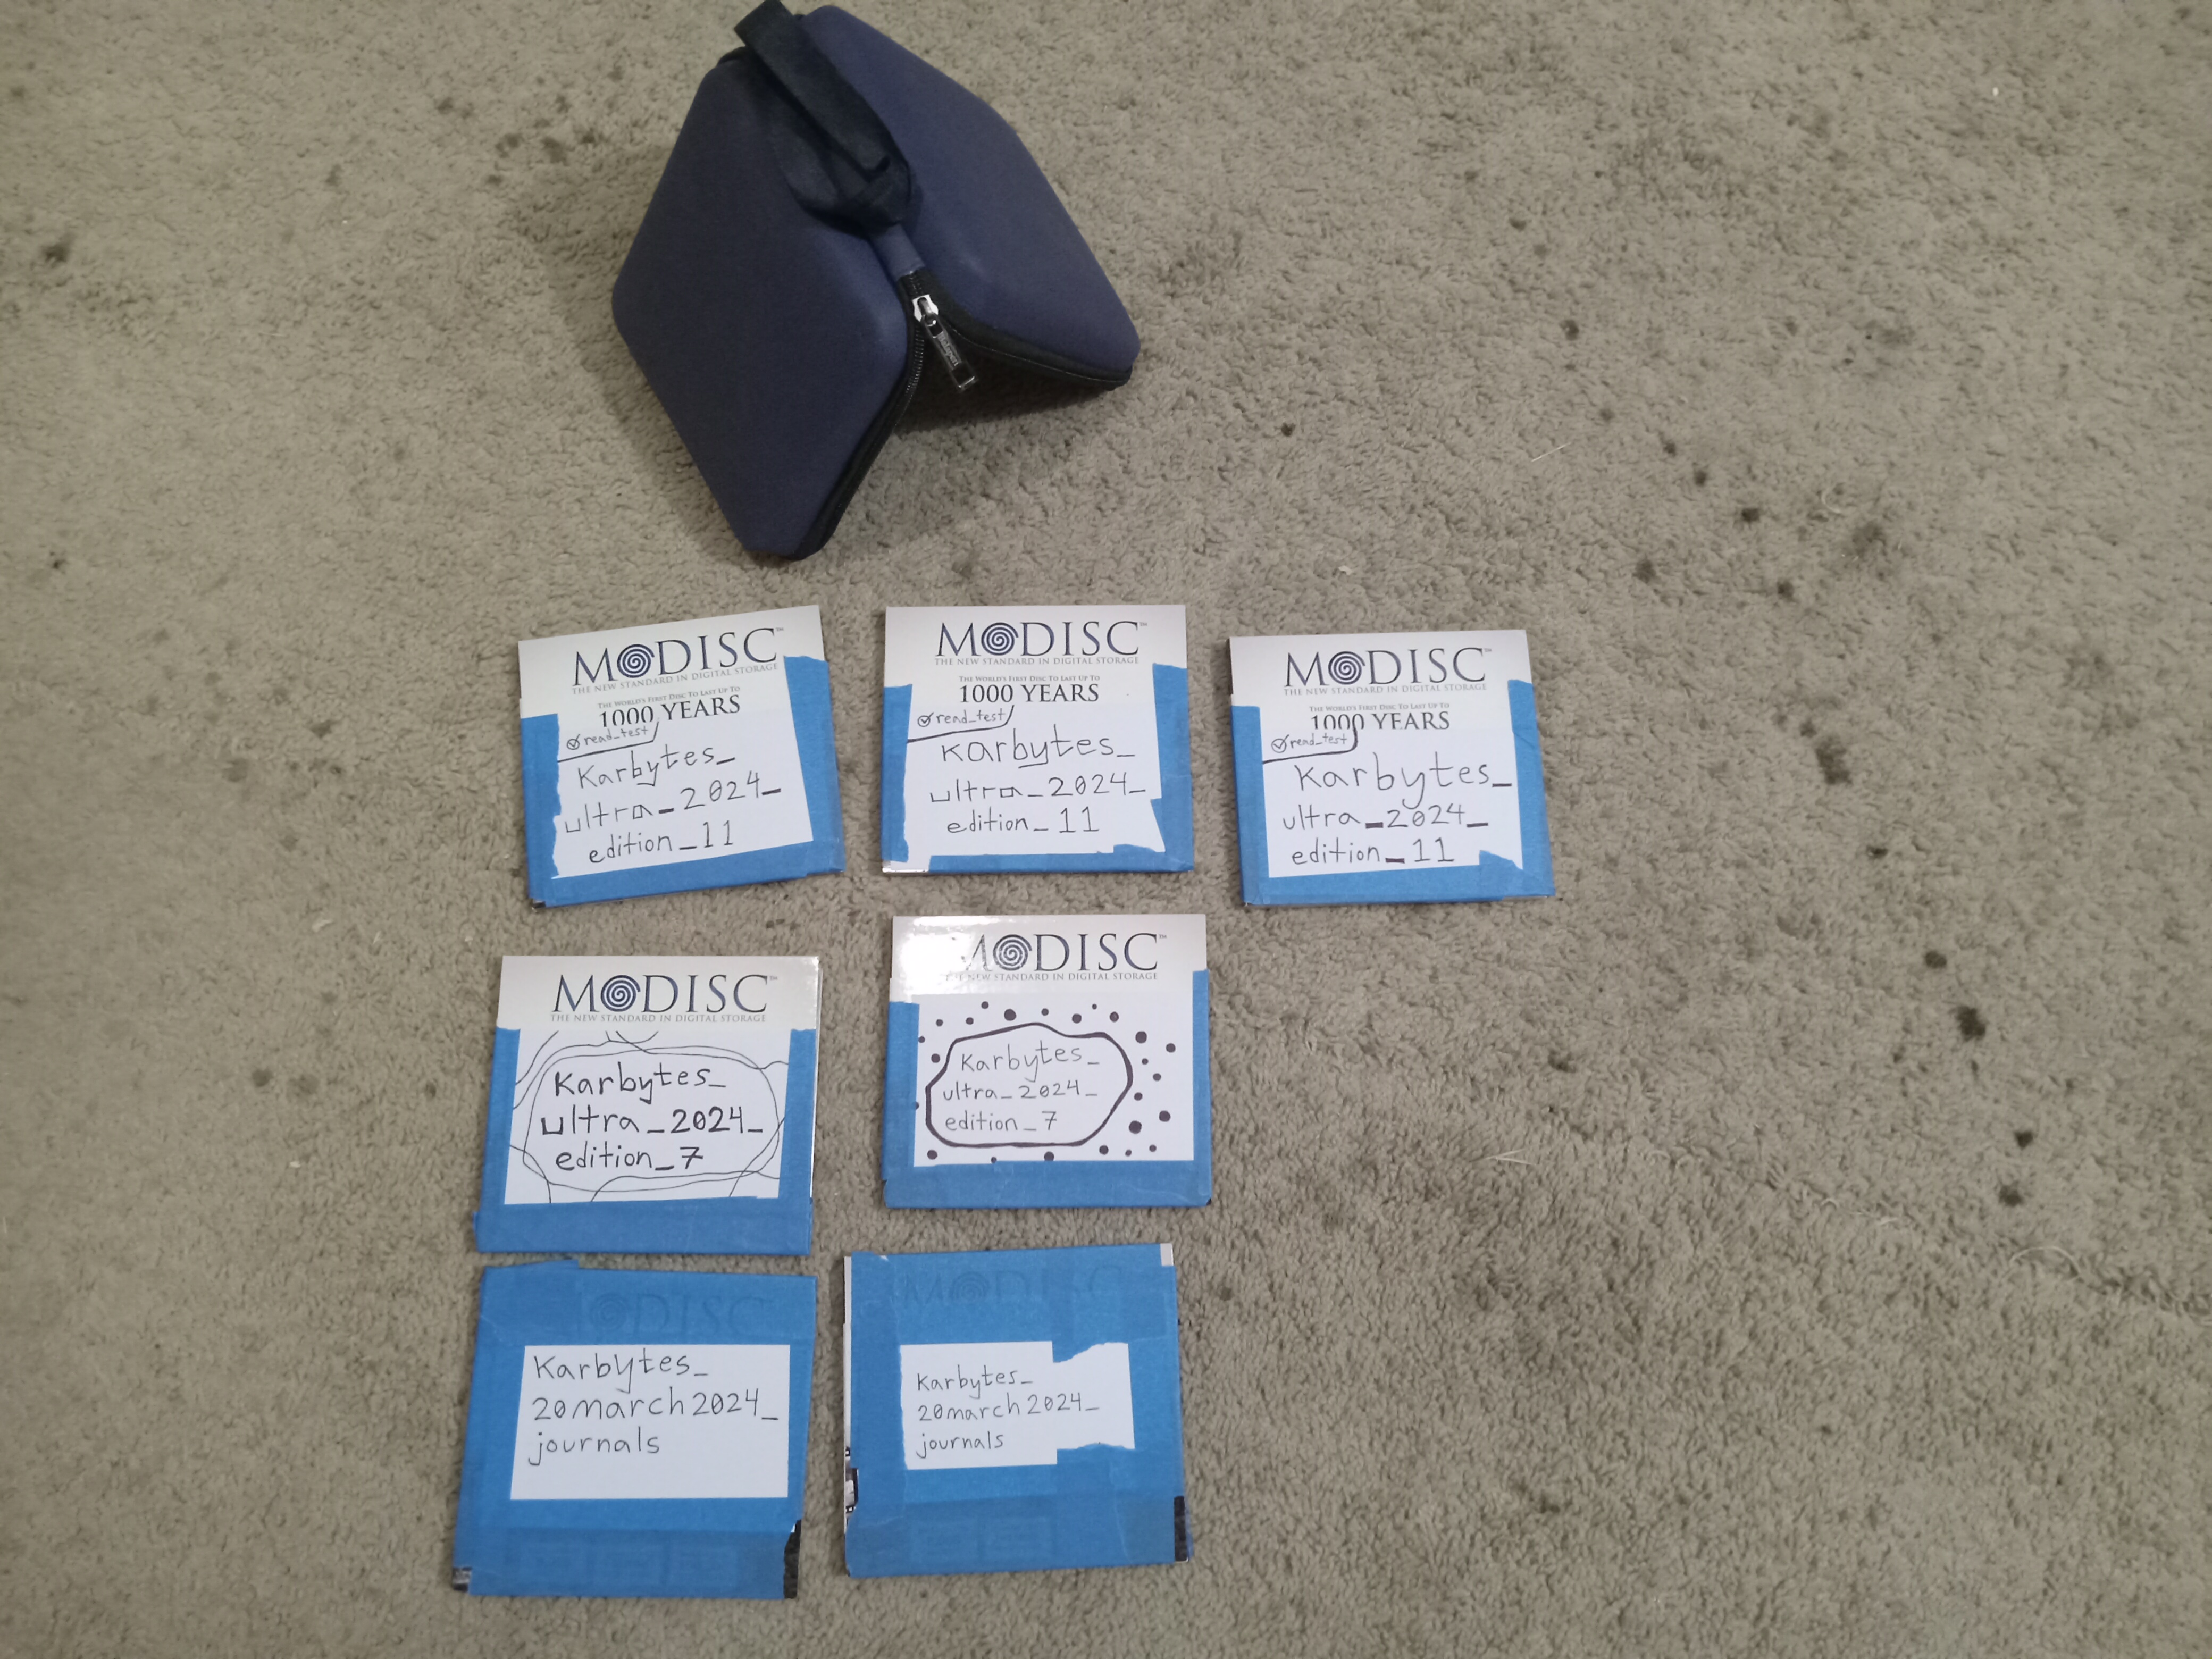 MODISC™
THE NEW STANDARD IN DIGITAL STORAGE
THE WORLD'S FIRST DISC TO LAST UP TO
1000 YEARS
read_test
Karbytes_
ultra_2024_
edition_11
MODISC™
THE NEW STANDARD IN DIGITAL STORAGE
THE WORLD'S FIRST DISC TO LAST UP TO
1000 YEARS
read_test
Karbytes_
ultra_2024_
edition_11
MODISC™
THE NEW STANDARD IN DIGITAL STORAGE
THE WORLD'S FIRST DISC TO LAST UP TO
1000 YEARS
read_test
Karbytes_
ultra_2024_
edition_11
MODISC™
THE NEW STANDARD IN DIGITAL STORAGE
Karbytes_
ultra_2024_
edition_7
MODISC™
THE NEW STANDARD IN DIGITAL STORAGE
Karbytes_
ultra_2024_
edition_7
DISC
Karbytes_
20march2024_
journals
MODISC
Karbytes_
20march2024_
journals